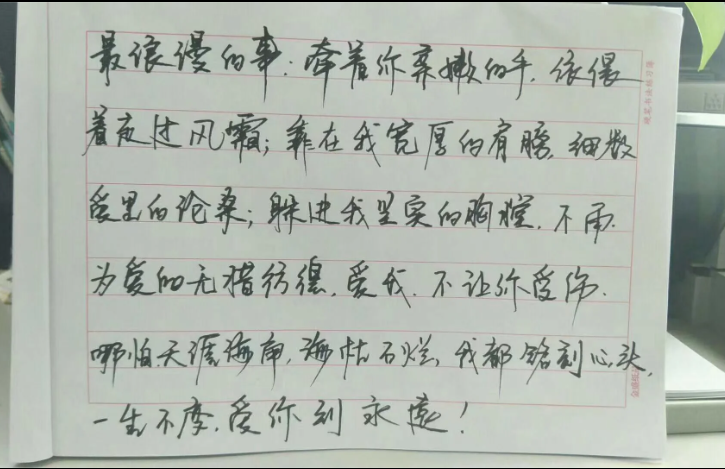 最浪漫的事：牵着你柔嫩的手，依偎
着夜过风霜；靠在我宽厚的肩膀，细数
爱里的沧桑；躲进我坚实的胸膛，不再
为爱的无措彷徨，爱我，不让你受伤。
哪怕天涯海南，海枯石烂，我都铭刻心头，
一生不变，爱你到永远！